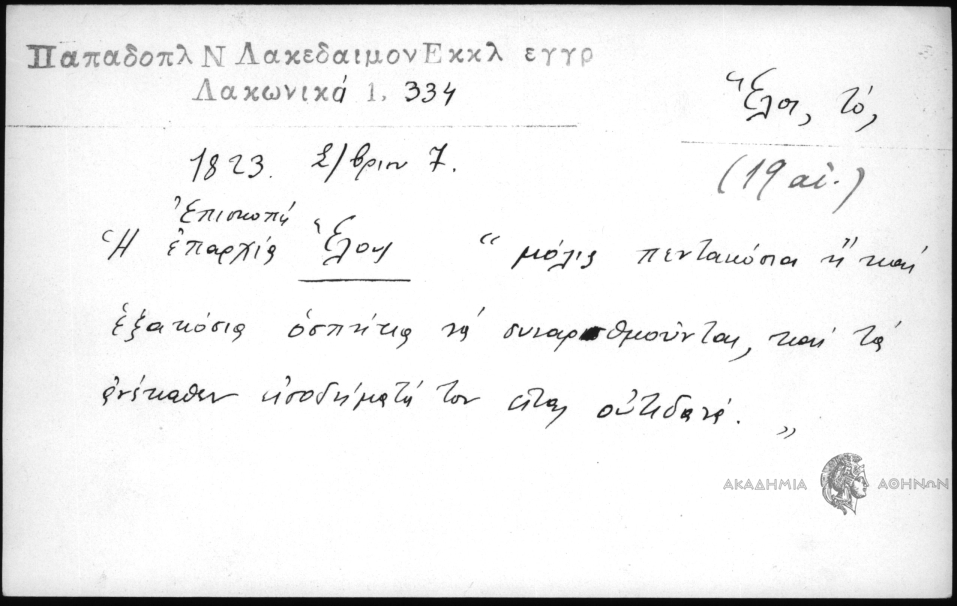 Παπαδοπλ Ν Λακεδαιμον Εκκλ εγγρ
Λακωνικά 1, 334
Ἕλος, τό,
(19 αἰ.)
1823. Σ/βριου 7.
Ἐπισκοπή
Ἡ ἐπαρχία Ἕλους “ μόλις πεντακόσια ἤ καί
ἑξακόσια ὁσπήτια νά συναριθμοῦνται, καί τά
ἀνέκαθεν εἰσοδήματά του εἶναι οὐτιδανά. „
ΑΚΑΔΗΜΙΑ ΑΘΗΝΩΝ